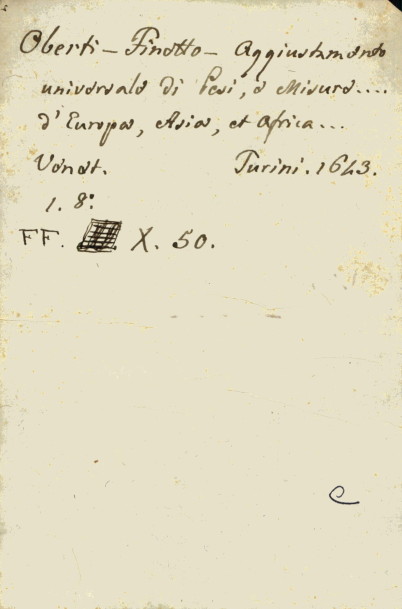 Oberti - Finotto - Aggiustamento
universale di Pesi, e Misure....
d'Europa, Asia, et Africa...
Venet. Turini. 1643.
1. 8º.
FF. X. 50.
e